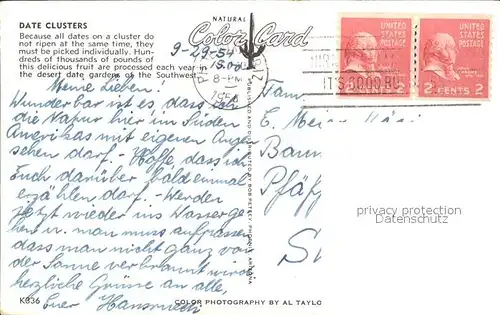 DATE CLUSTERS
Because all dates on a cluster do
not ripen at the same time, they
must be picked individually. Hun-
dreds of thousands of pounds of
this delicious fruit are processed each year in
the desert date gardens of the Southwest.
NATURAL
Color Card
9-29-54
15.00
8-PM
1954
UNITED STATES POSTAGE
2 CENTS 2
UNITED STATES POSTAGE
2 CENTS 2
IT'S GOOD BU
Meine Lieben!
Wunderbar ist es, dass ich
die Natur hier im Süden
Amerikas mit eigenen Augen
sehen darf. - Hoffe dass ich
Euch darüber bald einmal
erzählen darf. - Werden
jetzt wieder ins Wasser ge-
hen u. man muss aufpassen
dass man nicht ganz von
der Sonne verbrannt wird
herzliche Grüsse an alle,
Euer Hansruedi
Fam.
E. Meier
Bann
Pfäff
privacy protection
Datenschutz
K336
COLOR PHOTOGRAPHY BY AL TAYLO
PUBLISHED AND DISTRIBUTED BY BOB PETLEY, PHOENIX, ARIZONA